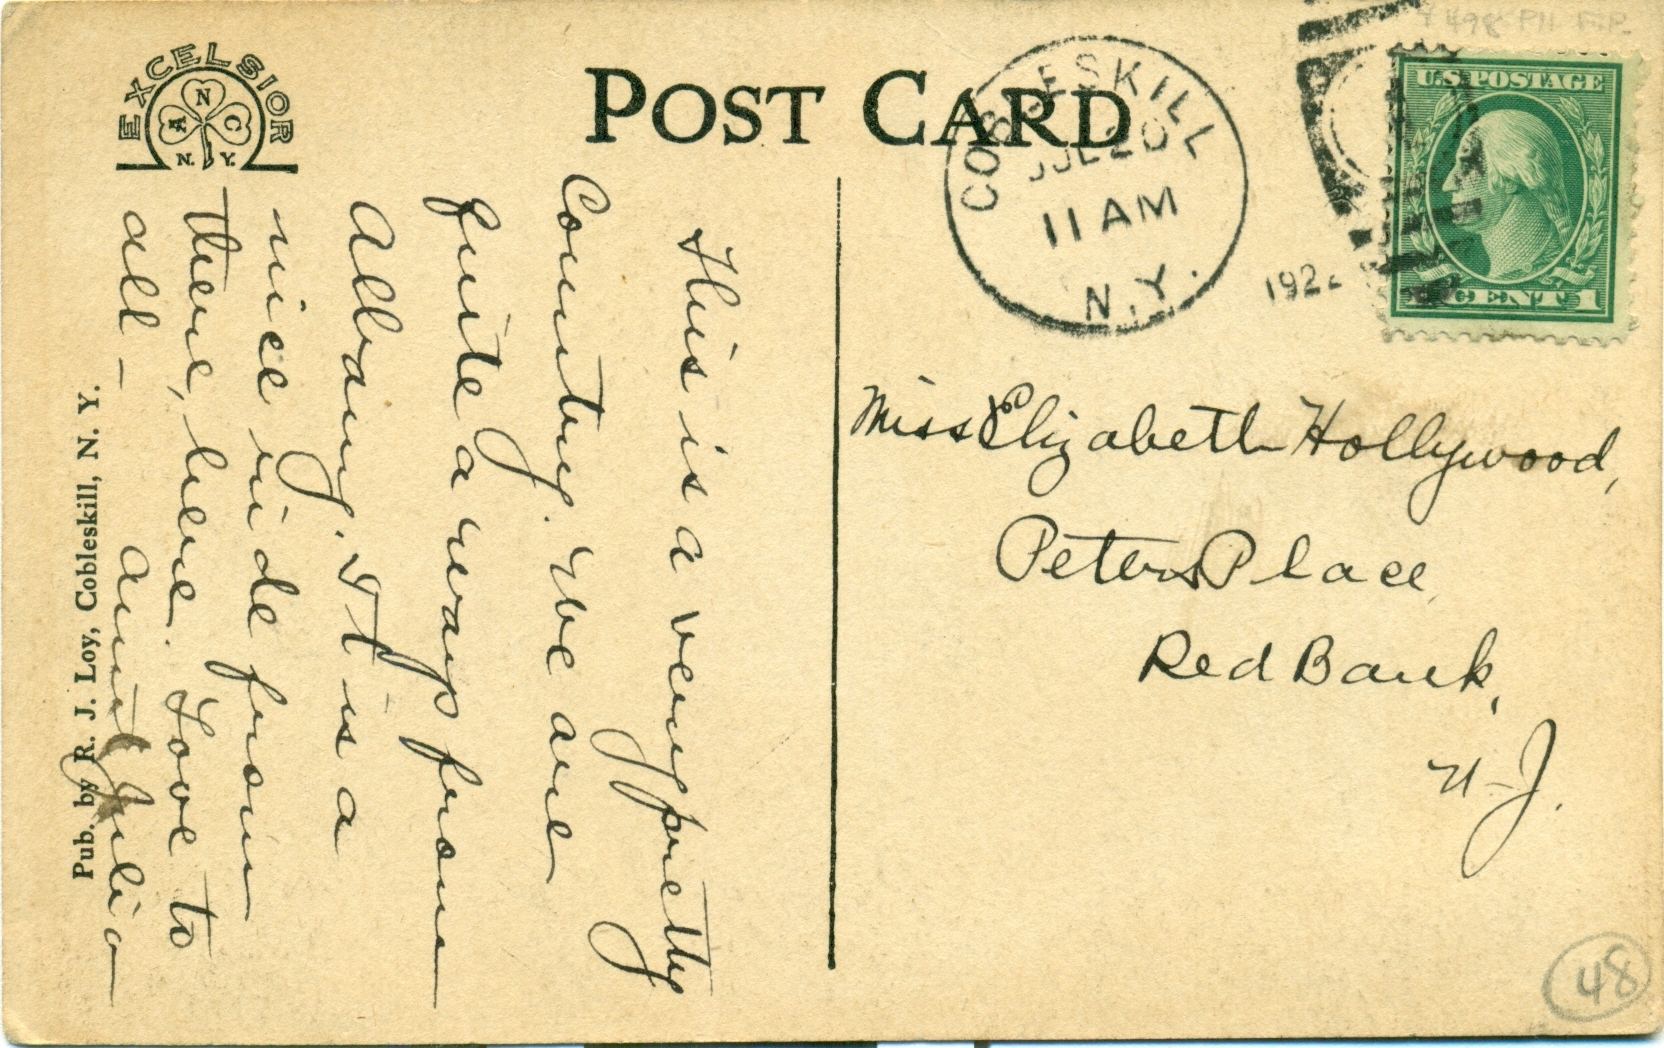 EXCELSIOR
N
A C
N. Y.
POST CARD
COBLESKILL
JUL 20
11 AM
N.Y.
192
U.S. POSTAGE
1 CENT 1
This is a very pretty
Country. We are
quite a ways from
Albany. It is a
nice ride from
there, here. Love to
all –
Aunt Julia
Miss Elizabeth Hollywood,
Peters Place
Red Bank,
N-J.
Pub. by R. J. Loy, Cobleskill, N. Y.
48